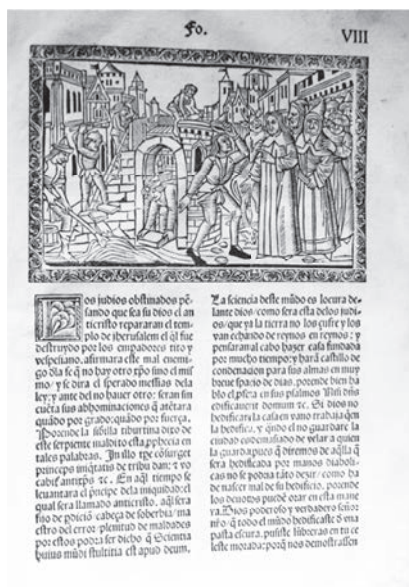 Fo.
VIII
Los judios obstinados pē
sando que sea su dios el an
ticristo repararan el tem
plo de jherusalem el q̄l fue
destruydo por los empadores tito y
vespesiano. afirmara este mal enemi-
go dīa se q̄ no hay otro dp̄o sino el mis
mo/ y se dira el sperado messias dela
ley: y ante del no hauer otro: seran sin
cuēta sus abhominaciones q̄ atētara
quādo por grado: quādo por fuerça.
Porende la sibilla tiburtina dito de
este serpiente maldito esta ꝓphecia en
tales palabras. In illo tꝑe cōsurget
princeps iniq̄tatis de tribu dan: 
 En aq̄l tiempo se
leuantara el p̄ncipe dela iniquidad: el
qual sera llamado anticristo. aq̄l sera
fijo de pdiciō cabeça de soberbia/ ma
estro del error plenitud de maldades
por estos podra ser dicho q̄ Sciencia
huius mūdi stultitia est apud deum.
La sciencia deste mūdo es locura de-
lante dios/ como sera esta delos judi
os/ que ya la tierra no los çufre y los
van echando de reynos en reynos: y
pensaran al cabo hazer casa fundada
por mucho tiempo: y harā castillo de
condenacion para sus almas en muy
breue spacio de dias. porende bien ha
blo el en sus psalmos Nisi dn̄s
edificauerit domum ⁊c. Si dios no
hedificara la casa en vano trabaja q̄en
la hedifica. y q̄ndo el no guardare la
ciudad es demasiado de velar a quien
la guarda. pues q̄ diremos de aq̄lla q̄
sera hedificada por manos diaboli-
cas no se podria tāto dezir/ como ha
de nascer mal de su hedificio. porende
los deuotos puedē orar en esta mane
ya. Dios poderoso y verdadero señor
nr̄o. q̄ todo el mūdo hedificaste d̄ vna
pasta escura. pusiste lūbreras en tu ce
leste morada: porq̄ nos demostrassen